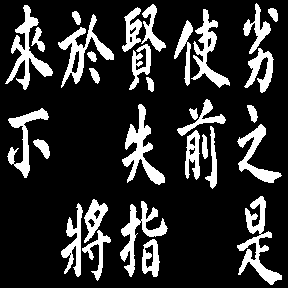 劣之是
使前
賢失指
於將
來不